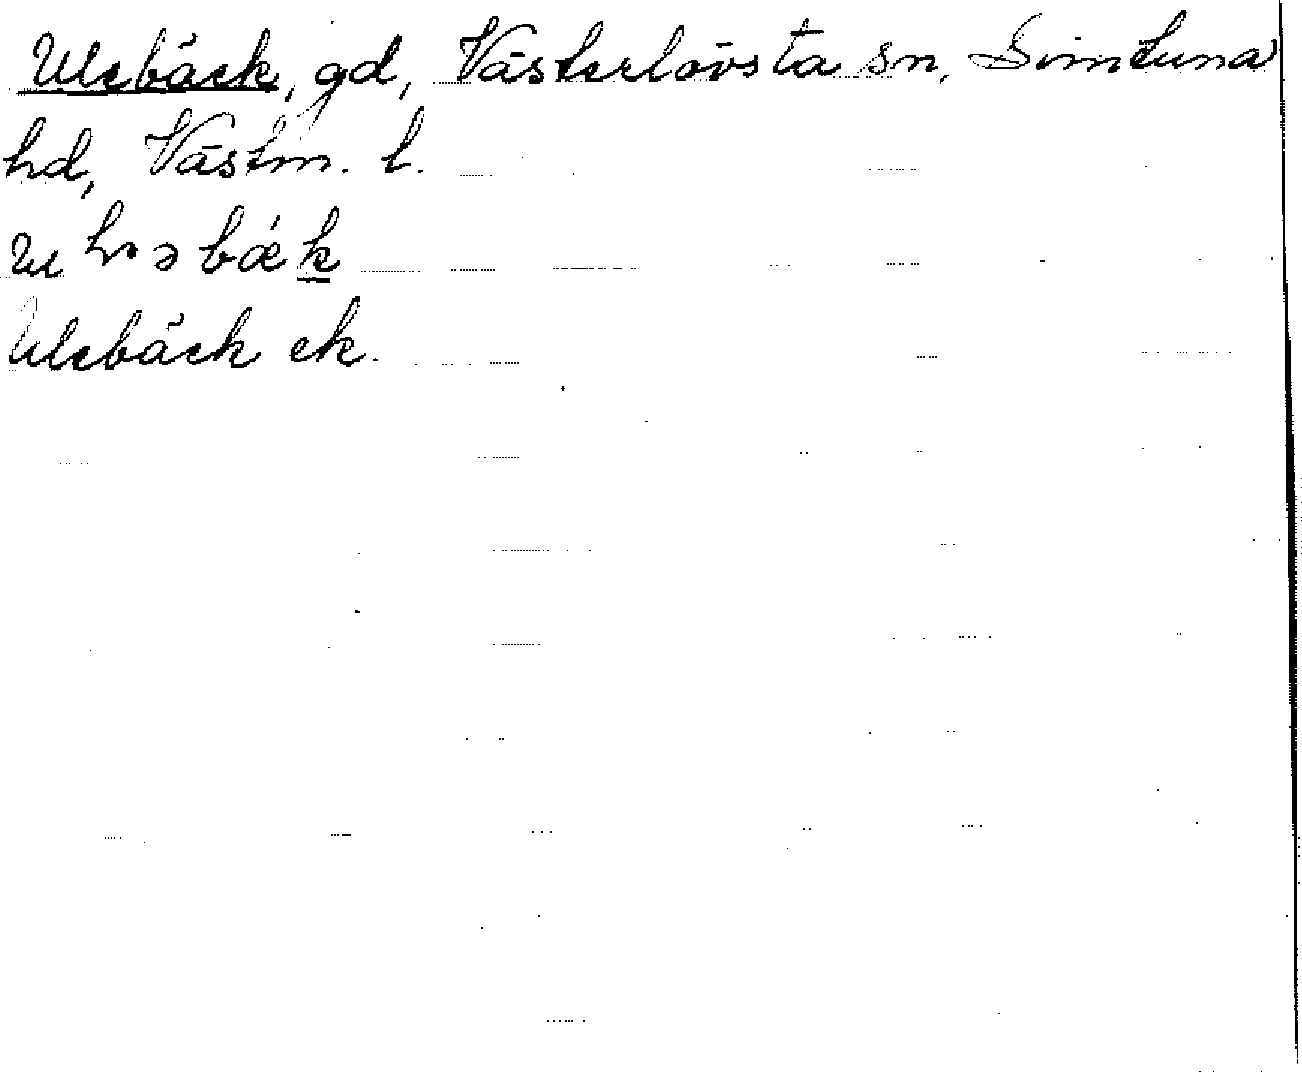 Ulebäck, gd, Västerlövsta sn, Simtuna
hd, Västm. l.
Ulebäck ek.